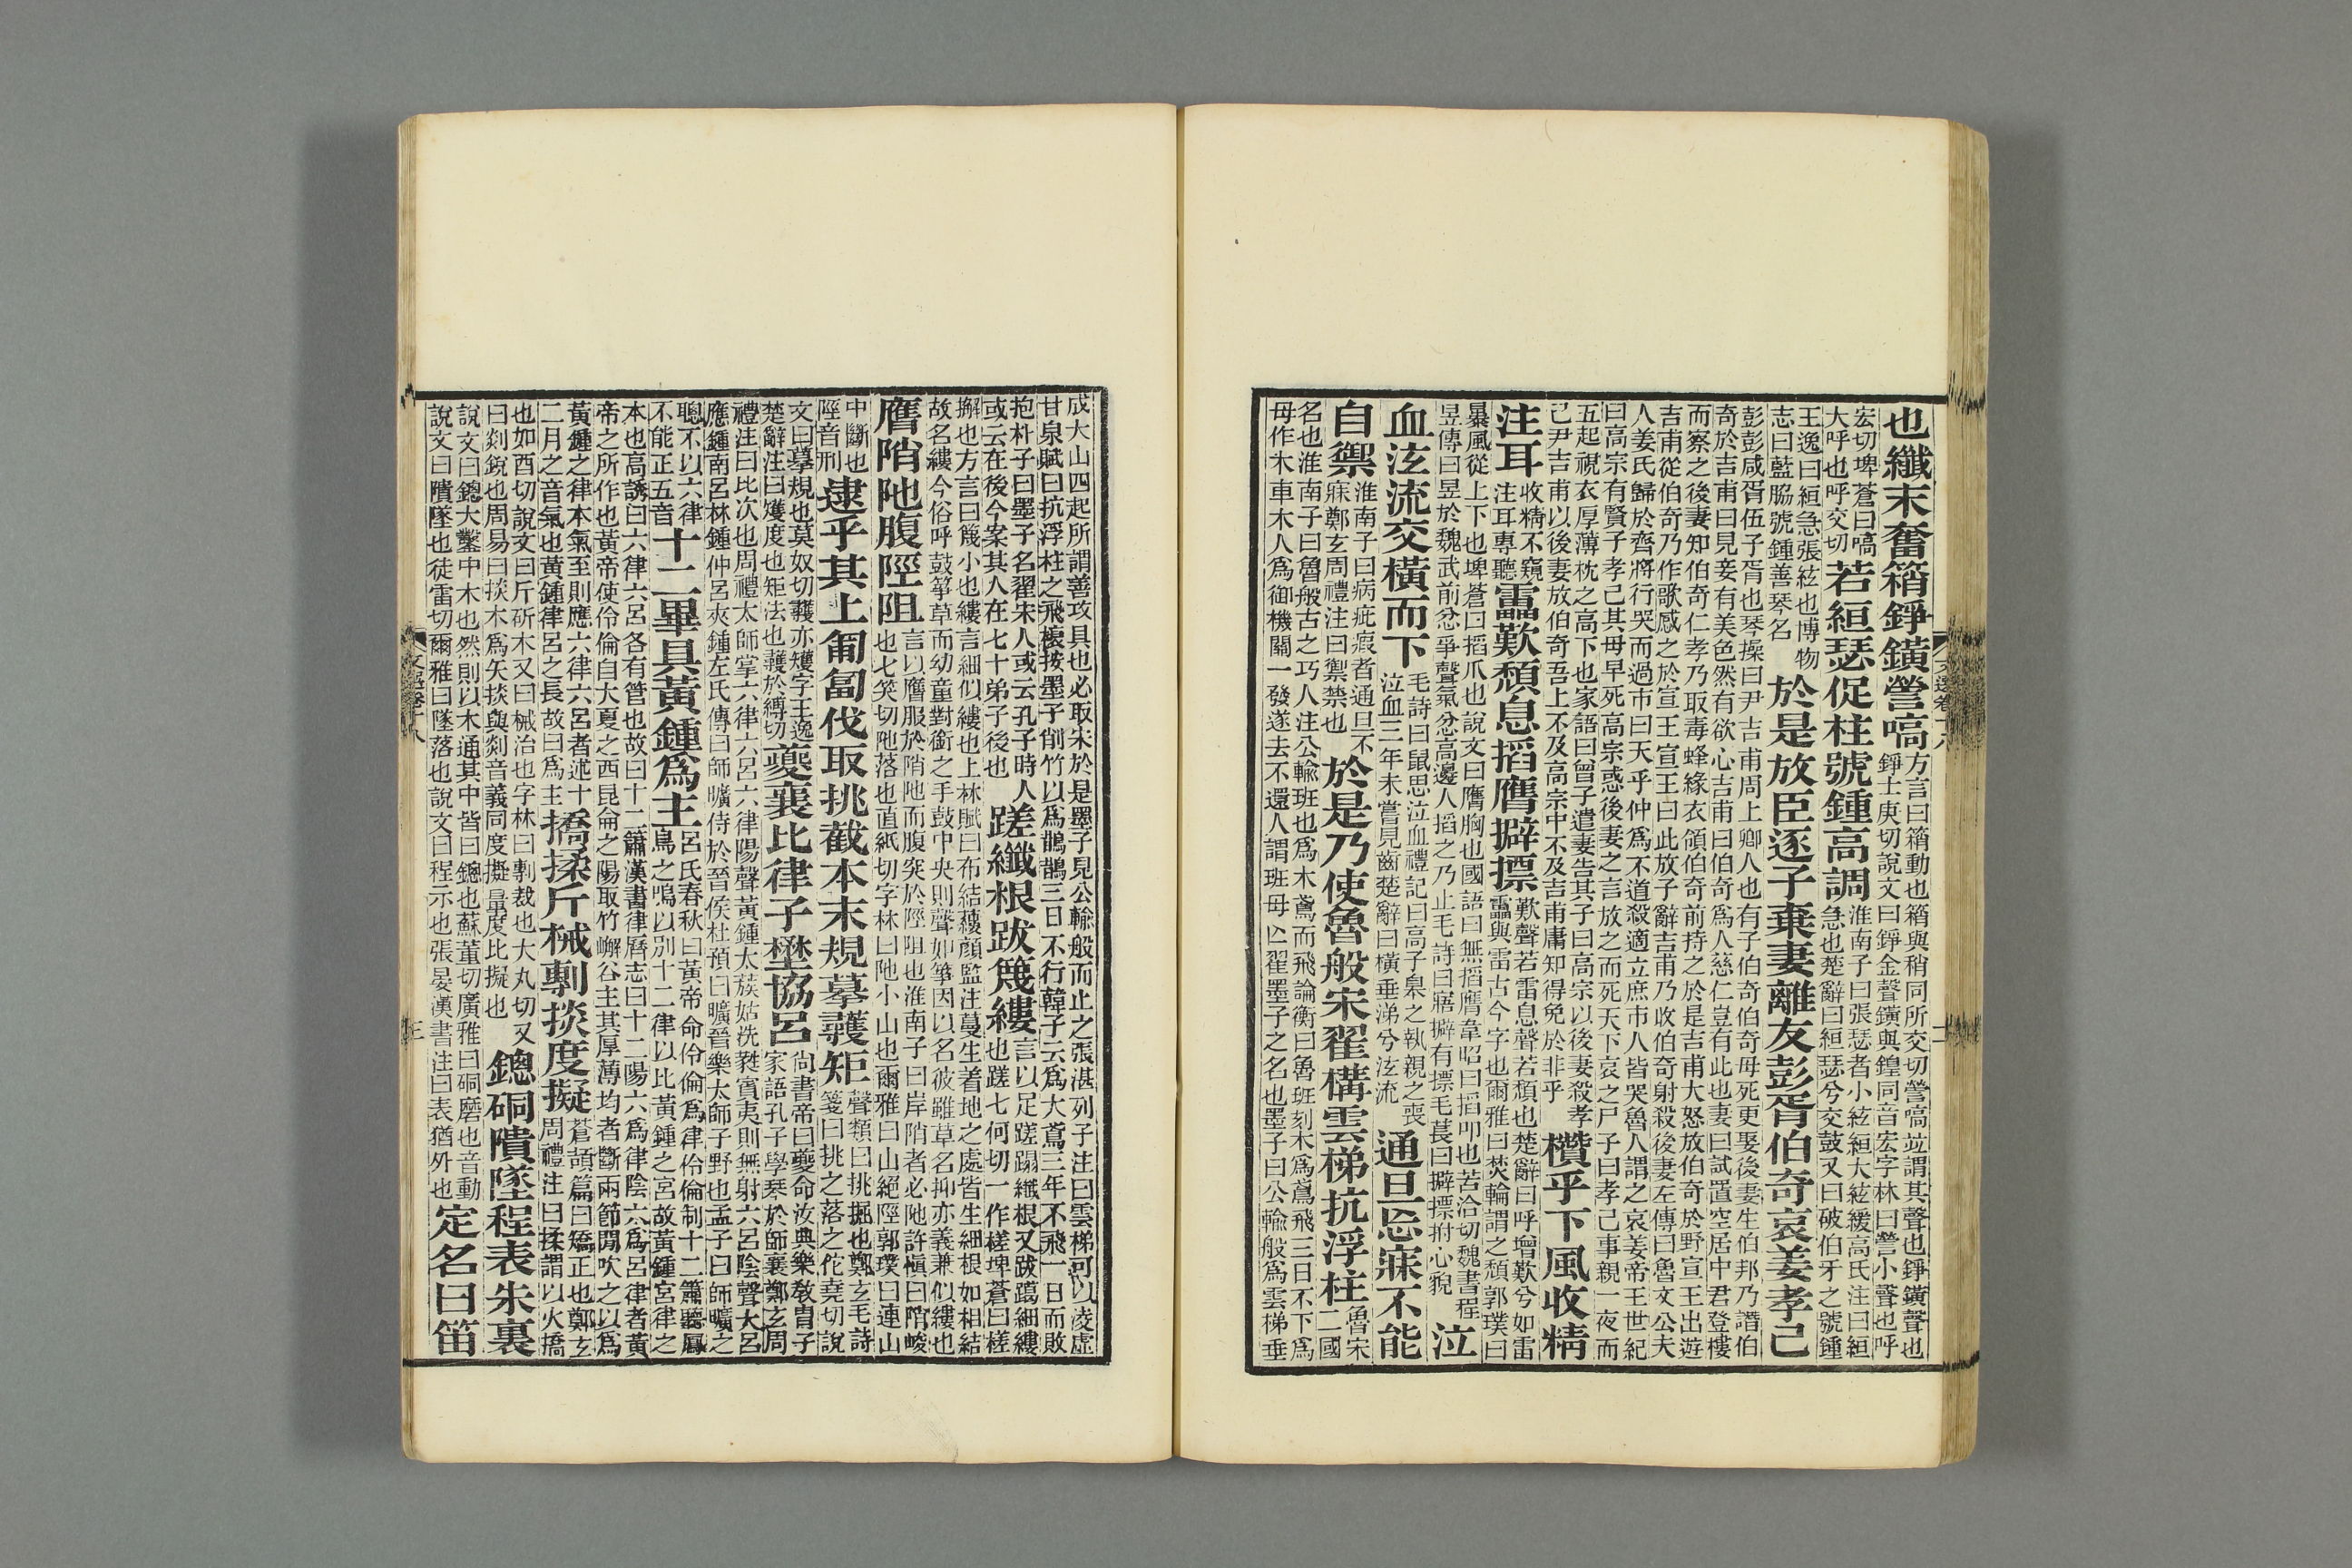 也纖末奮䈰錚鐄謍嗃方言曰䈰動也䈰與稍同所交切謍嗃竝謂其聲也錚鐄聲也錚士庚切說文曰錚金聲鐄與鍠同音宏字林曰謍小聲也呼
宏切埤蒼曰嗃大呼也呼交切若絙瑟促柱號鍾高調淮南子曰張瑟者小絃絙大絃緩高氏注曰絙急也楚辭曰絙瑟兮交鼓又曰破伯牙之號鍾
王逸曰絙急張絃也博物志曰藍脇號鍾善琴名於是放臣逐子棄妻離友彭胥伯奇哀姜孝己
彭彭咸胥伍子胥也琴操曰尹吉甫周上卿人也有子伯奇伯奇母死更娶後妻生伯邦乃譖伯奇於吉甫曰見妾有美色然有欲心吉甫曰伯奇爲人慈仁豈有此也妻曰試置空居中君登樓
而察之後妻知伯奇仁孝乃取毒蜂緣衣領伯奇前持之於是吉甫大怒放伯奇於野宣王出遊吉甫從伯奇乃作歌感之於宣王宣王曰此放子辭吉甫乃收伯奇射殺後妻左傳曰魯文公夫
人姜氏歸於齊將行哭而過市曰天乎仲爲不道殺適立庶市人皆哭魯人謂之哀姜帝王世紀曰高宗有賢子孝己其母早死高宗惑後妻之言放之而死天下哀之尸子曰孝己事親一夜而
五起視衣厚薄枕之高下也家語曰曾子遣妻告其子曰高宗以後妻殺孝己尹吉甫以後妻放伯奇吾上不及高宗中不及吉甫庸知得免於非乎櫕乎下風收精
注耳收精不窺注耳專聽靁歎頹息搯膺擗摽歎聲若雷息聲若頹也楚辭曰呼增歎兮如雷靁與雷古今字也爾雅曰焚輪謂之頹郭璞曰
暴風從上下也埤蒼曰搯爪也說文曰膺胸也國語曰無搯膺韋昭曰搯叩也苦洽切魏書程昱傳曰昱於魏武前忿爭聲氣忿高邊人搯之乃止毛詩曰寤擗有摽毛萇曰擗摽拊心貌泣
血泫流交橫而下毛詩曰鼠思泣血禮記曰高子臯之執親之喪泣血三年未嘗見齒楚辭曰橫垂涕兮泫流通旦忘寐不能
自禦淮南子曰病疵瘕者通旦不寐鄭玄周禮注曰禦禁也於是乃使魯般宋翟構雲梯抗浮柱魯宋二國
名也淮南子曰魯般古之巧人注公輸班也爲木鳶而飛論衡曰魯班刻木爲鳶飛三日不下爲母作木車木人爲御機關一發遂去不還人謂班母亡翟墨子之名也墨子曰公輸般爲雲梯垂
成大山四起所謂善攻具也必取宋於是墨子見公輸般而止之張湛列子注曰雲梯可以淩虛甘泉賦曰抗浮柱之飛榱按墨子削竹以爲鵲鵲三日不行韓子云爲大鳶三年不飛一日而敗
抱朴子曰墨子名翟宋人或云孔子時人或云在後今案其人在七十弟子後也蹉纖根跋篾縷言以足蹉蹋纖根又跋躠細縷也蹉七何切一作槎埤蒼曰槎
擗也方言曰篾小也縷言細似縷也上林賦曰布結縷顏監注蔓生着地之處皆生細根如相結故名縷今俗呼鼓箏草而幼童對銜之手鼓中央則聲如箏因以名彼雖草名抑亦義兼似縷也
膺陗阤腹陘阻言以膺服於陗阤而腹突於陘阻也淮南子曰岸陗者必阤許愼曰陗峻也七笑切阤落也直紙切字林曰阤小山也爾雅曰山絕陘郭璞曰連山
中斷也陘音刑逮乎其上匍匐伐取挑截本末規摹彠矩聲類曰挑掘也鄭玄毛詩箋曰挑之落之佗堯切說
文曰摹規也莫奴切彠亦矱字王逸楚辭注曰矱度也矩法也彠於縛切夔襄比律子壄協呂尚書帝曰夔命汝典樂教胄子家語孔子學琴於師襄鄭玄周
禮注曰比次也周禮太師掌六律六呂六律陽聲黃鍾太蔟姑洗蕤賓夷則無射六呂陰聲大呂應鍾南呂林鍾仲呂夾鍾左氏傳曰師曠侍於晉侯杜預曰曠晉樂太師子野也孟子曰師曠之
聰不以六律不能正五音十二畢具黃鍾爲主呂氏春秋曰黃帝命伶倫爲律伶倫制十二籥聽鳳鳥之鳴以別十二律以比黃鍾之宮故黃鍾宮律之
本也高誘曰六律六呂各有管也故曰十二籥漢書律曆志曰十二陽六爲律陰六爲呂律者黃帝之所作也黃帝使伶倫自大夏之西昆侖之陽取竹嶰谷主其厚薄均者斷兩節閒吹之以爲
黃鍾之律本氣至則應六律六呂者述十二月之音氣也黃鍾律呂之長故曰爲主撟揉斤械剸掞度擬蒼頡篇曰矯正也鄭玄周禮注曰揉謂以火撟
也如酉切說文曰斤斫木又曰械治也字林曰剸裁也大丸切又曰剡銳也周易曰掞木爲矢掞與剡音義同度擬量度比擬也鏓硐隤墜程表朱裏
說文曰鏓大鑿中木也然則以木通其中皆曰鏓也蘇董切廣雅曰硐磨也音動說文曰隤墜也徒雷切爾雅曰墜落也說文曰程示也張晏漢書注曰表猶外也定名曰笛
文選卷十八
三